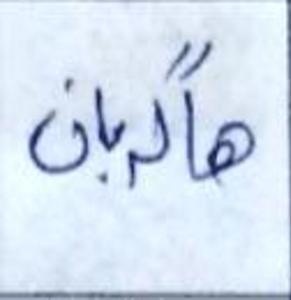 هاگربان